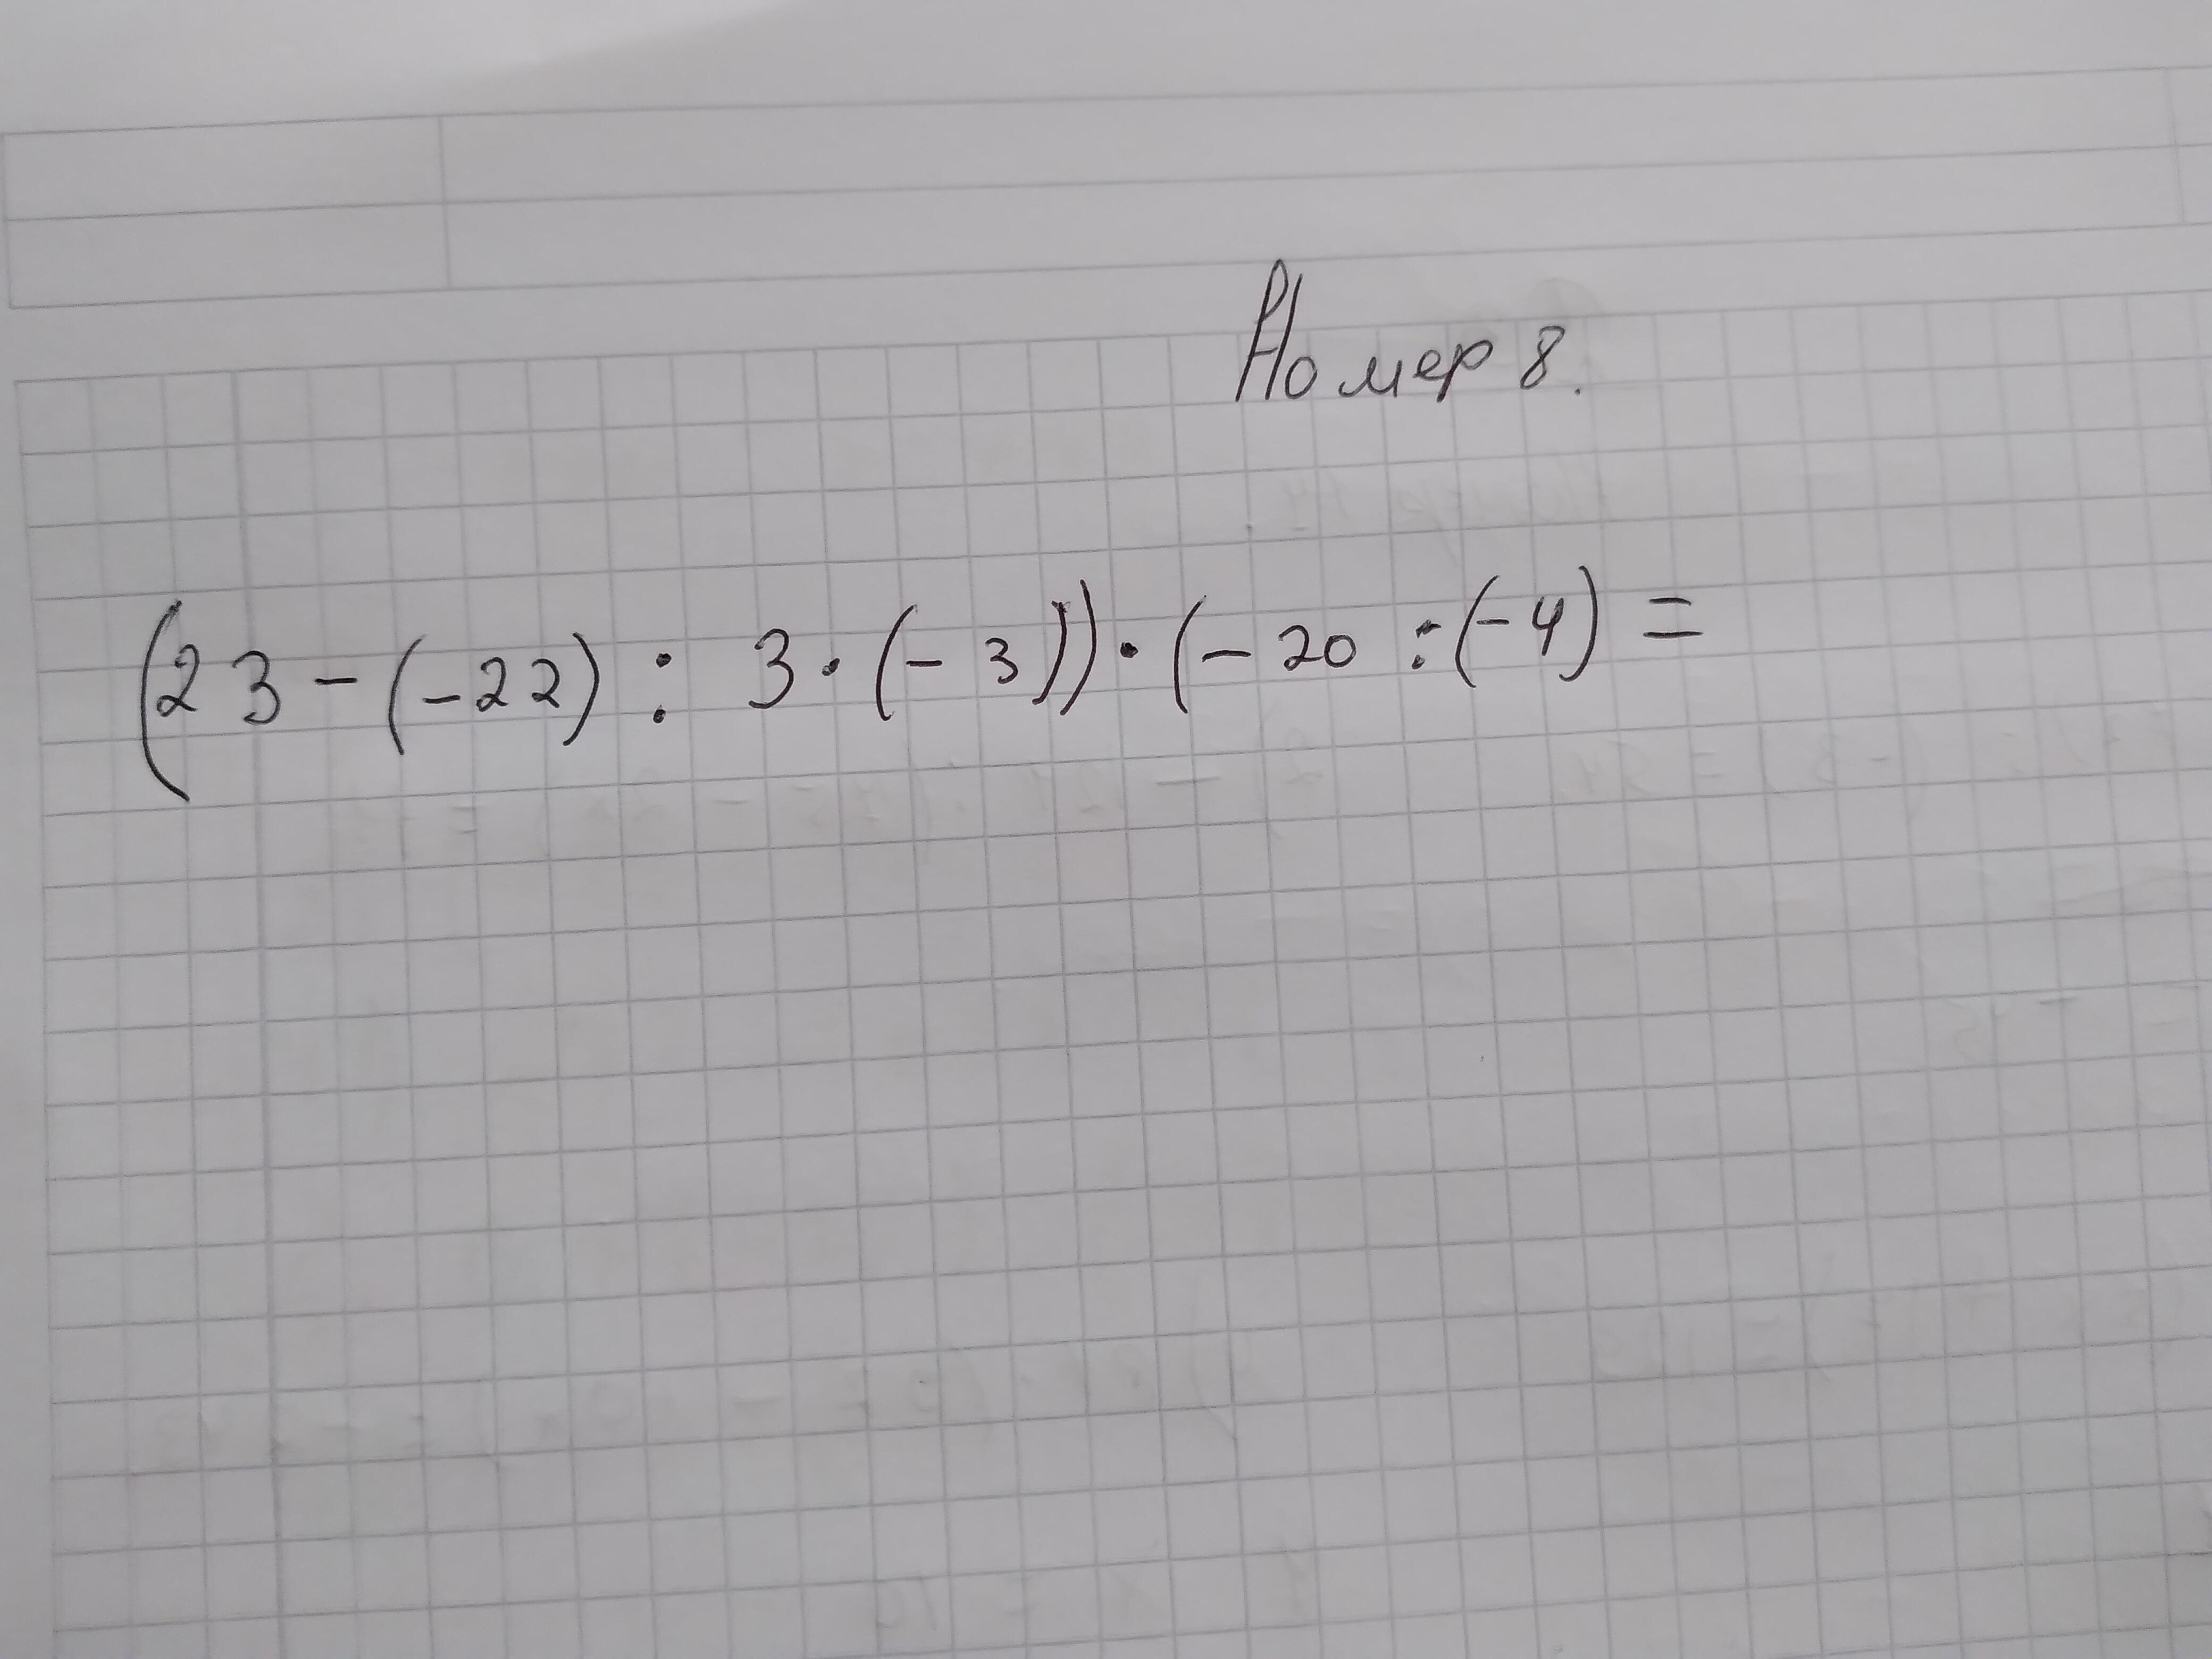 Номер 8.
(23-(-22) : 3·(-3))·(-20 :(-4) =